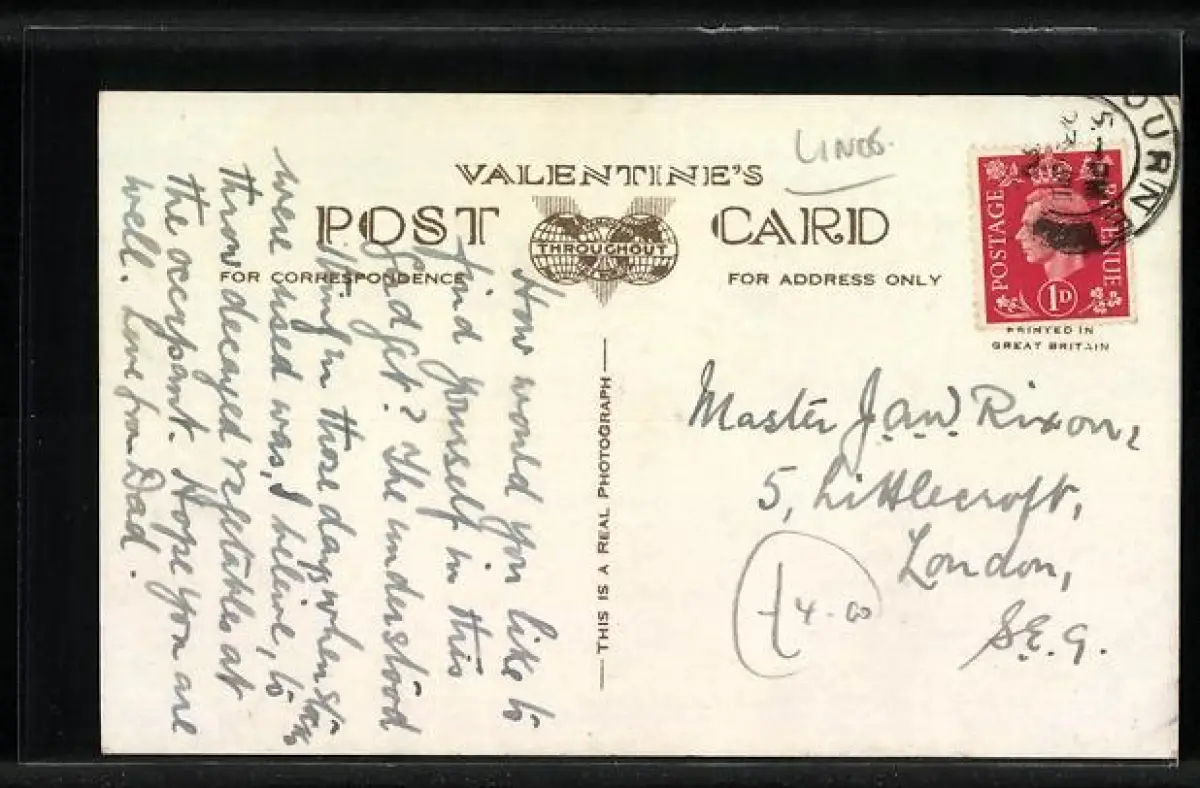 LINCS.
VALENTINE'S
POST CARD
THROUGHOUT
FOR CORRESPONDENCE
FOR ADDRESS ONLY
POSTAGE REVENUE
1D
OURN
5. - PM
PRINTED IN
GREAT BRITAIN
How would you like to
find yourself in this
gadget? The understood
thing in those days when stocks
were used was, I believe, to
throw decayed vegetables at
the occupant. Hope you are
well. Love from Dad.
THIS IS A REAL PHOTOGRAPH
Master J.A.W. Rixon,
5, Littlecroft,
London,
S.E.9.
£4-00